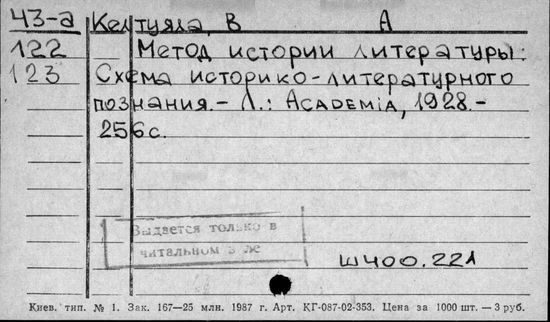 43-а Келтуяла, В А
122 Метод истории литературы:
123 Схема историко-литературного
познания.- Л.: ACADEMIA, 1928.-
256с.
Выдается только в
читальном з ле
Ш400.221
Киев. тип. № 1. Зак. 167—25 млн. 1987 г. Арт. КГ-087-02-353. Цена за 1000 шт. — 3 руб.